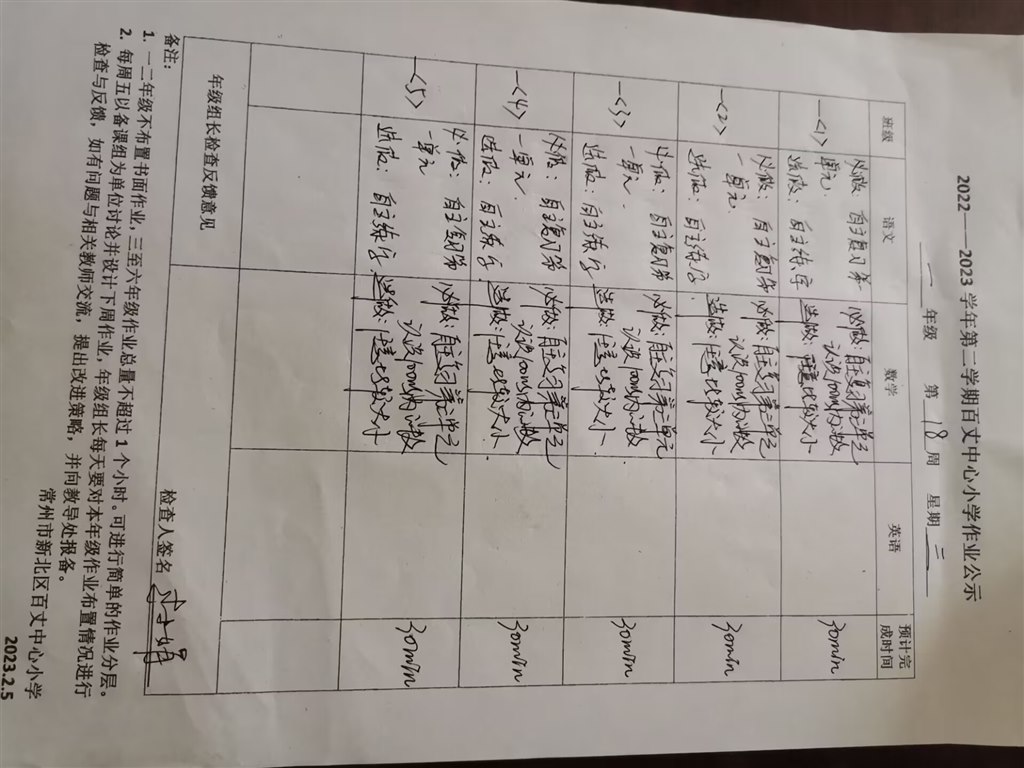 2022——2023 学年第二学期百丈中心小学作业公示
一 年级 第 18 周 星期 二
班级 语文 数学 英语 预计完成时间
一(1) 必做：自主复习第一单元 选做：自主练字 必做：自主复习第三单元 认识100以内的数 选做：任意比较大小 30min
一(2) 必做：自主复习第一单元. 选做：自主练字. 必做：自主复习第三单元 认识100以内的数 选做：任意比较大小 30min
一(3) 必做：自主复习第一单元. 选做：自主练字 必做：自主复习第三单元 认识100以内的数 选做：任意比较大小 30min
一(4) 必做：自主复习第一单元. 选做：自主练字 必做：自主复习第三单元 认识100以内的数 选做：任意比较大小. 30min
一(5) 必做：自主复习第一单元 选做：自主练字 必做：自主复习第三单元 认识100以内的数 选做：任意比较大小 30min
年级组长检查反馈意见 检查人签名
备注：
1. 一二年级不布置书面作业，三至六年级作业总量不超过 1 个小时。可进行简单的作业分层。
2. 每周五以备课组为单位讨论并设计下周作业，年级组长每天要对本年级作业布置情况进行
检查与反馈，如有问题与相关教师交流，提出改进策略，并向教导处报备。
常州市新北区百丈中心小学
2023.2.5